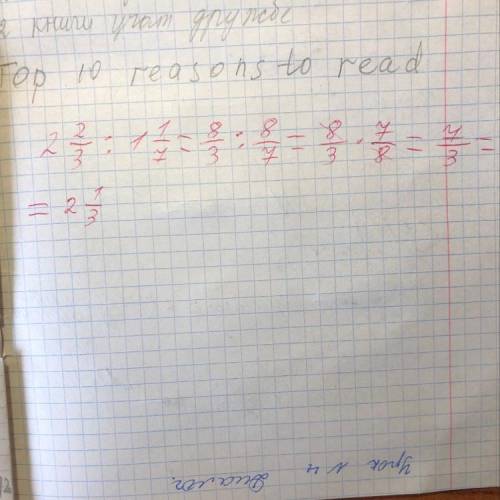 2 книги учат дружбе
Top 10 reasons to read
2 2/3 : 1 1/7 = 8/3 : 8/7 = 8/3 · 7/8 = 7/3 =
= 2 1/3
Урок № 4 Диалог.
12